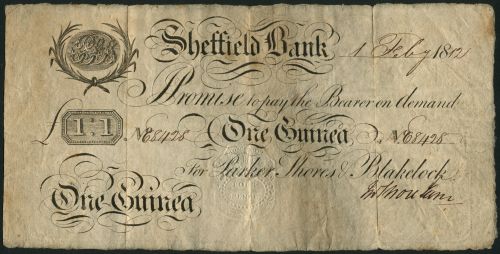 Sheffield Bank
1 Feby 1812
I Promise to pay the Bearer on demand
£ 1:1 No 8428 One Guinea No 8428
For Parker Shores & Blakelock
One Guinea